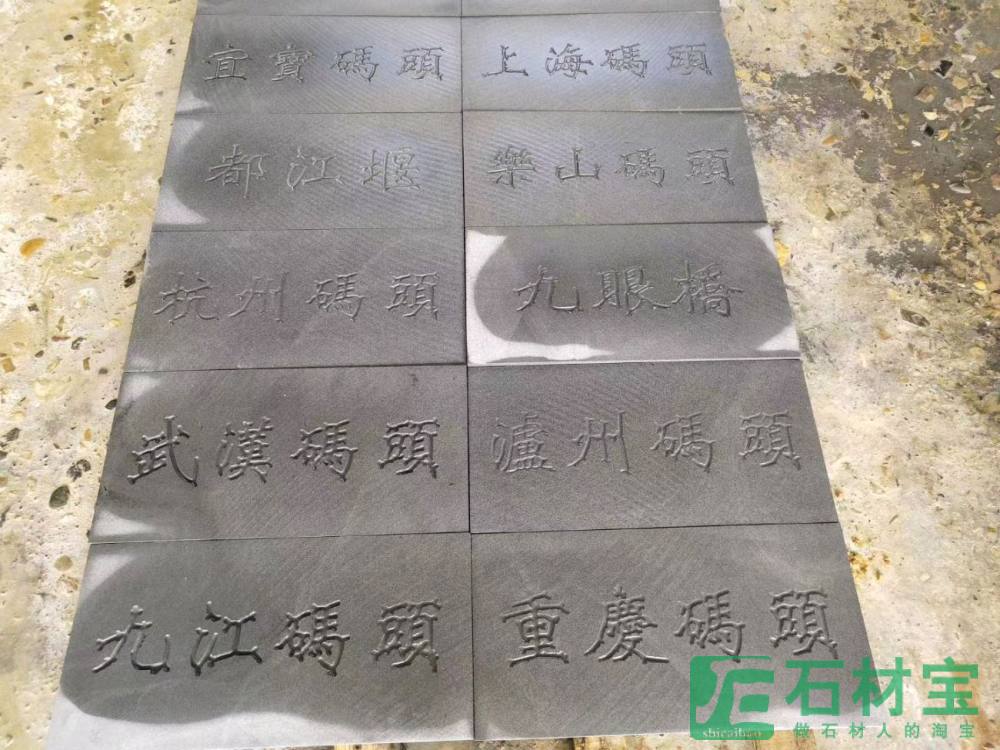 宜賓碼頭
上海碼頭
都江堰
樂山碼頭
杭州碼頭
九眼橋
武漢碼頭
瀘州碼頭
九江碼頭
重慶碼頭
石材宝
做石材人的淘宝
shicaibao